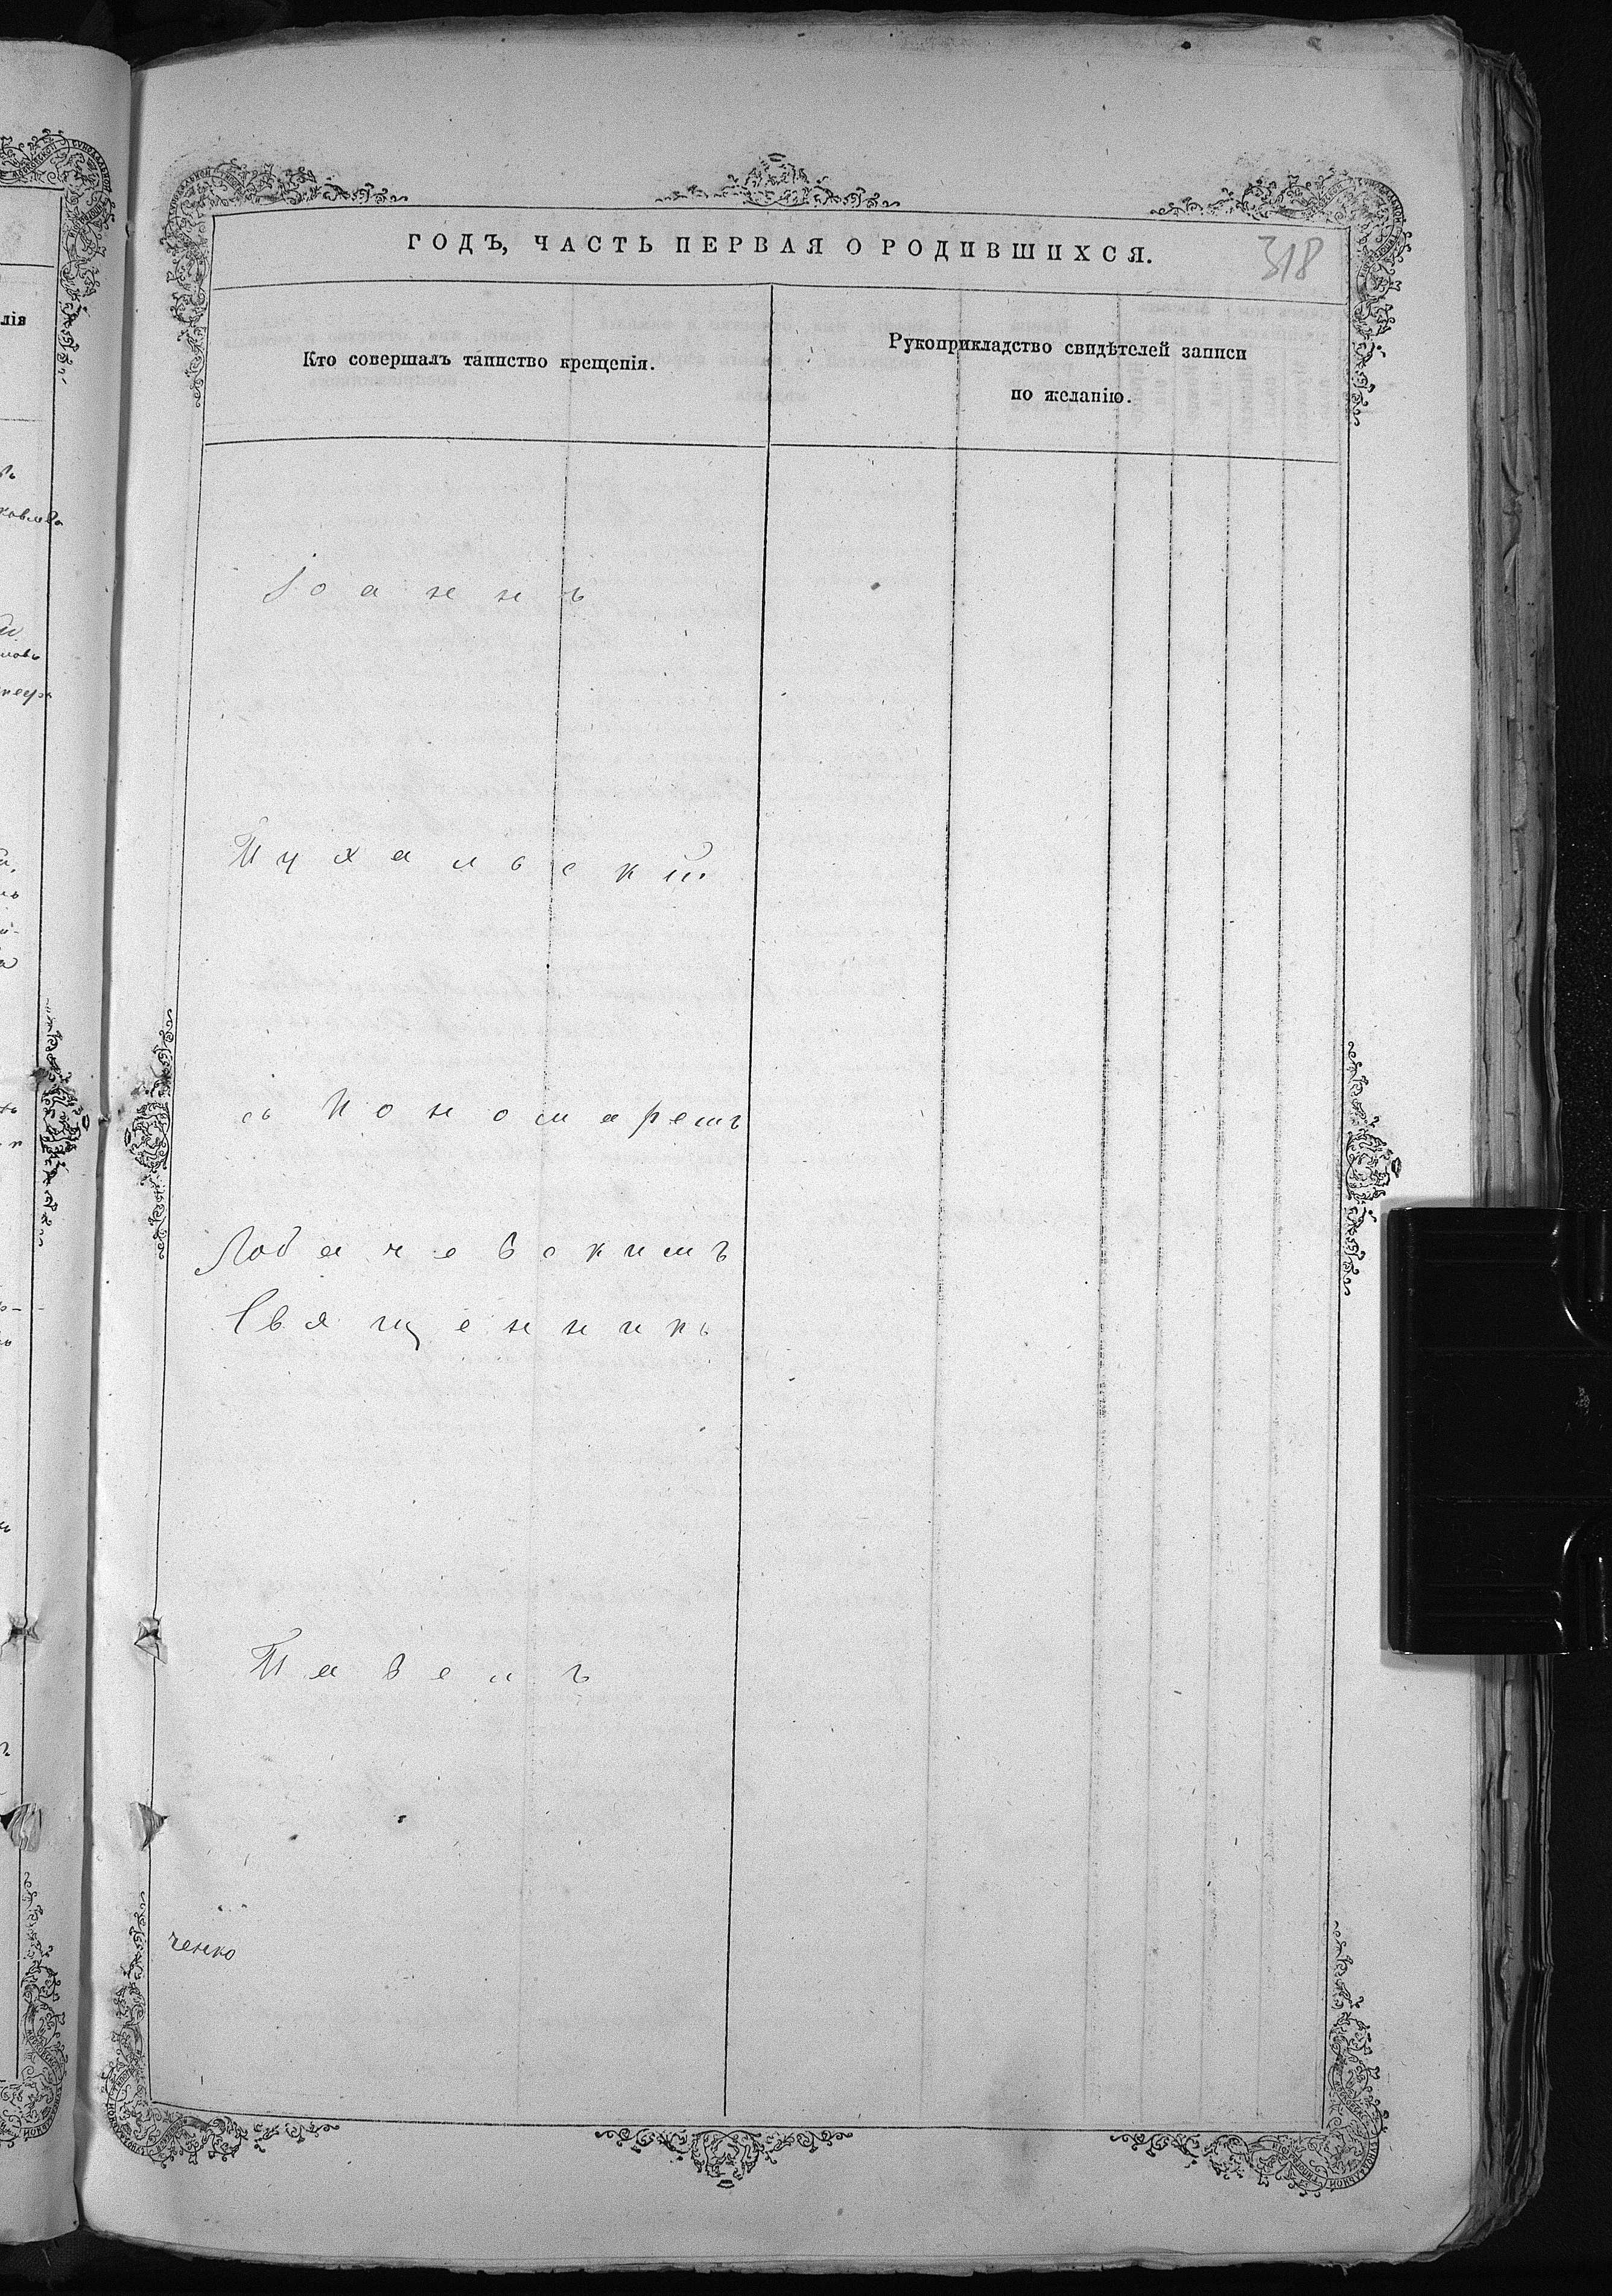 лія
ковлева
ГОДЪ, ЧАСТЬ ПЕРВАЯ О РОДИВШИХСЯ.
318
Кто совершалъ таинство крещенія.
Рукоприкладство свидѣтелей записи
по желанію.
Іоаннъ
Пухальскій
съ Пономаремъ
Лобачевскимъ
Священникъ
Павелъ
ченко